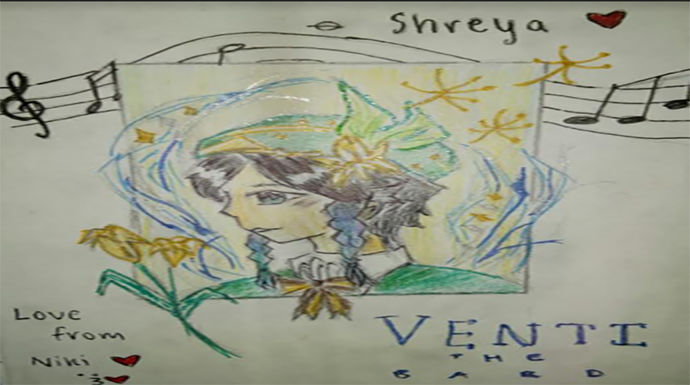 Shreya
Love
from
Niki
VENTI
THE
BARD